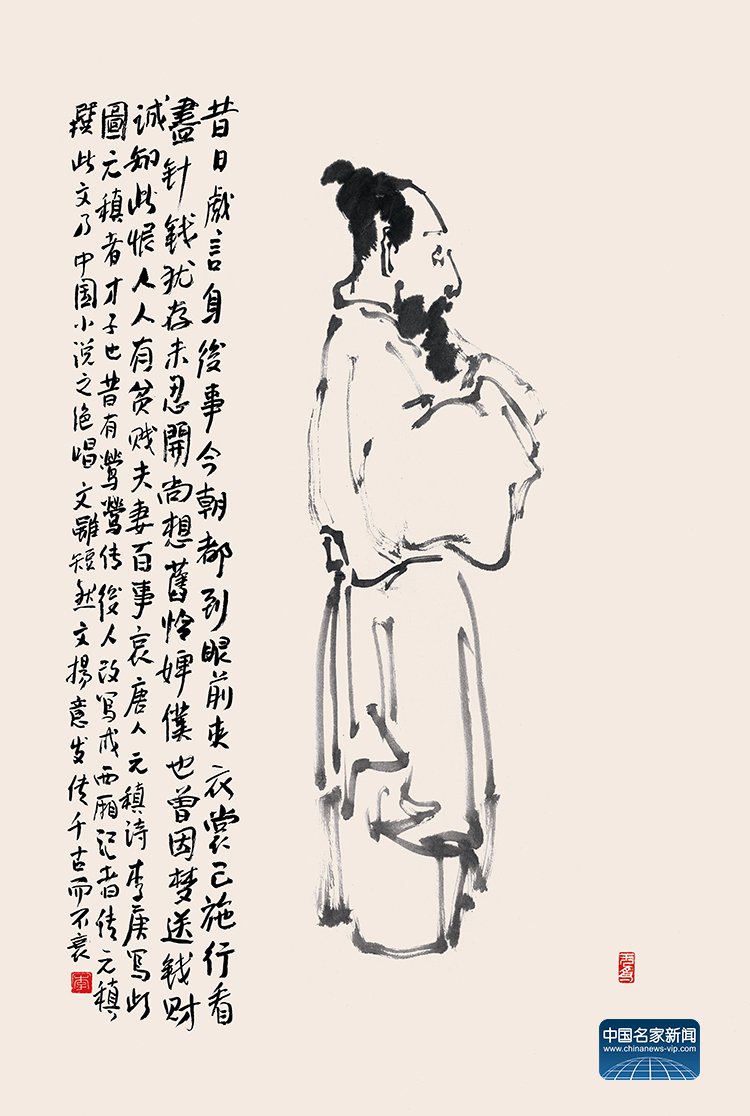 昔日戲言身後事今朝都到眼前来衣裳已施行看
盡针线犹存未忍開尚想舊怜婢僕也曾因梦送钱财
诚知此恨人人有贫贱夫妻百事哀唐人元稹诗李庚写此
圖元稹者才子也昔有鶯鶯传後人改写成西厢记者传元稹
撰此文乃中国小说之绝唱文雖短然文揚意发传千古而不衰
李
中国名家新闻
www.chinanews-vip.com